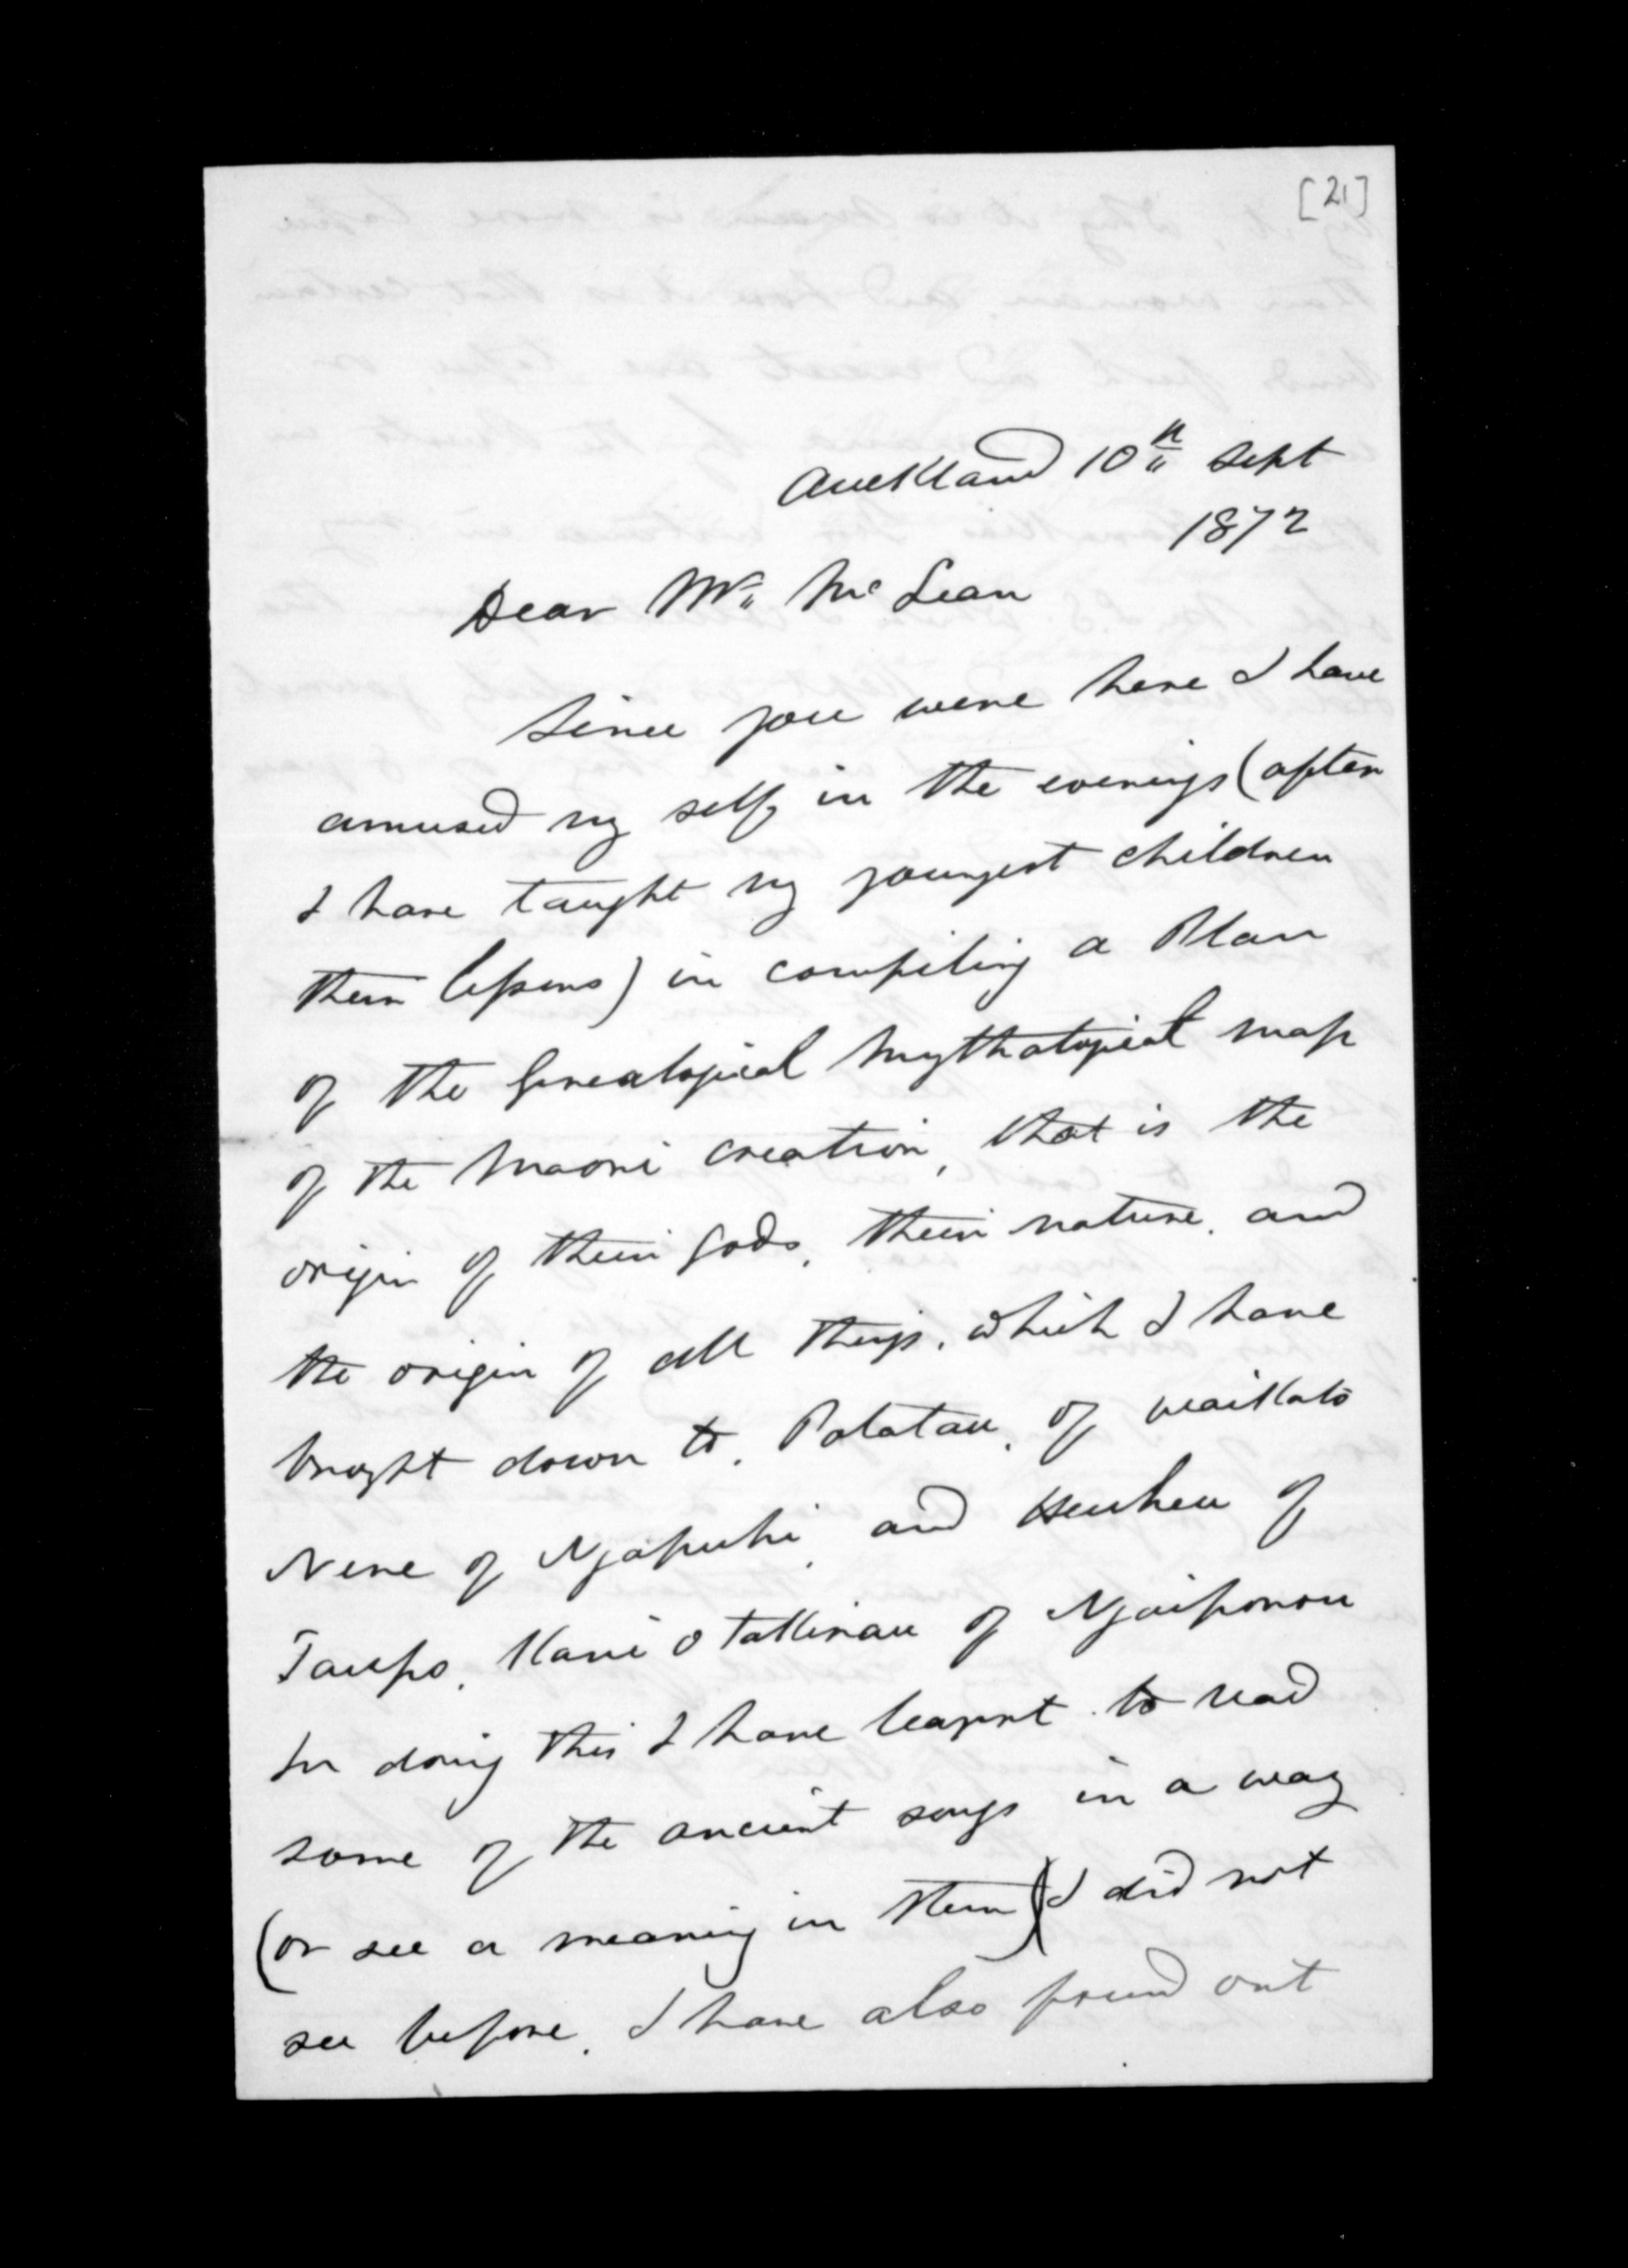 [21]
Auckland 10th Sept
1872
Dear Mr. McLean
Since you were here I have
amused my self, in the evenings (after
I have taught my youngest children
their lessons) in compiling a Plan
of the Genealogical Mythalogical map
of the Maori creation, that is the
origin of their Gods, their nature, and
the origin of all things, which I have
brought down to, Potatau, of Waikato
Nene of Ngapuhi, and Heuheu of
Taupo,
In doing this I have learnt to read
some of the ancient songs in a way
(or see a meaning in them) I did not
see before. I have also found out